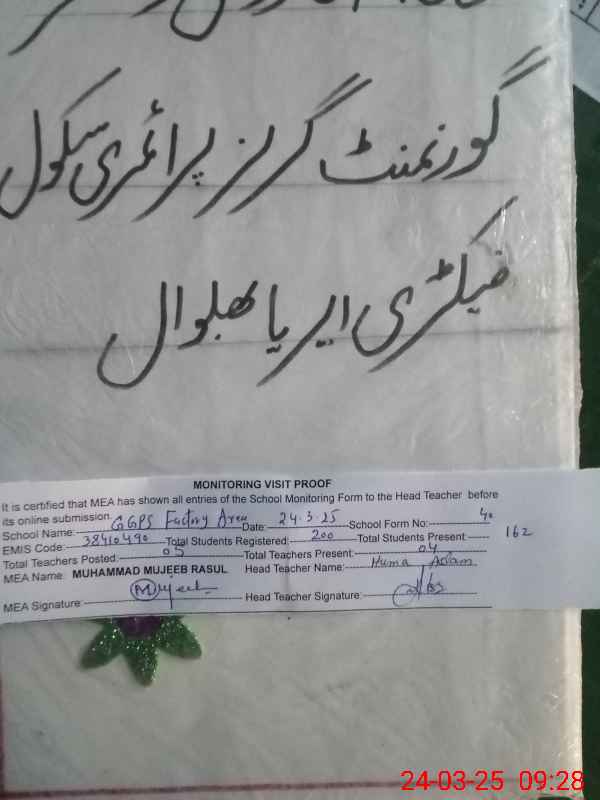 گورنمنٹ گرلز پرائمری سکول
فیکٹری ایریا بھلوال
MONITORING VISIT PROOF
It is certified that MEA has shown all entries of the School Monitoring Form to the Head Teacher before
its online submission.
School Name: GGPS Factory Area Date: 24.3.25 School Form No: 40
EMIS Code: 38410490 Total Students Registered: 200 Total Students Present 162
Total Teachers Posted: 05 Total Teachers Present: 04
MEA Name: MUHAMMAD MUJEEB RASUL Head Teacher Name: Huma Aslam
MEA Signature: Mujeeb Head Teacher Signature:
24-03-25 09:28